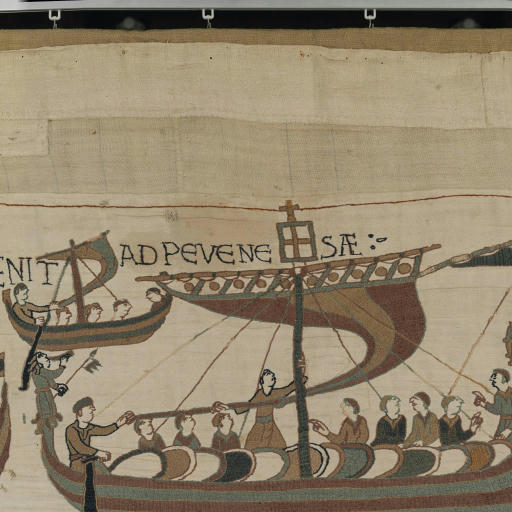 ENIT AD PEVENE SÆ :-